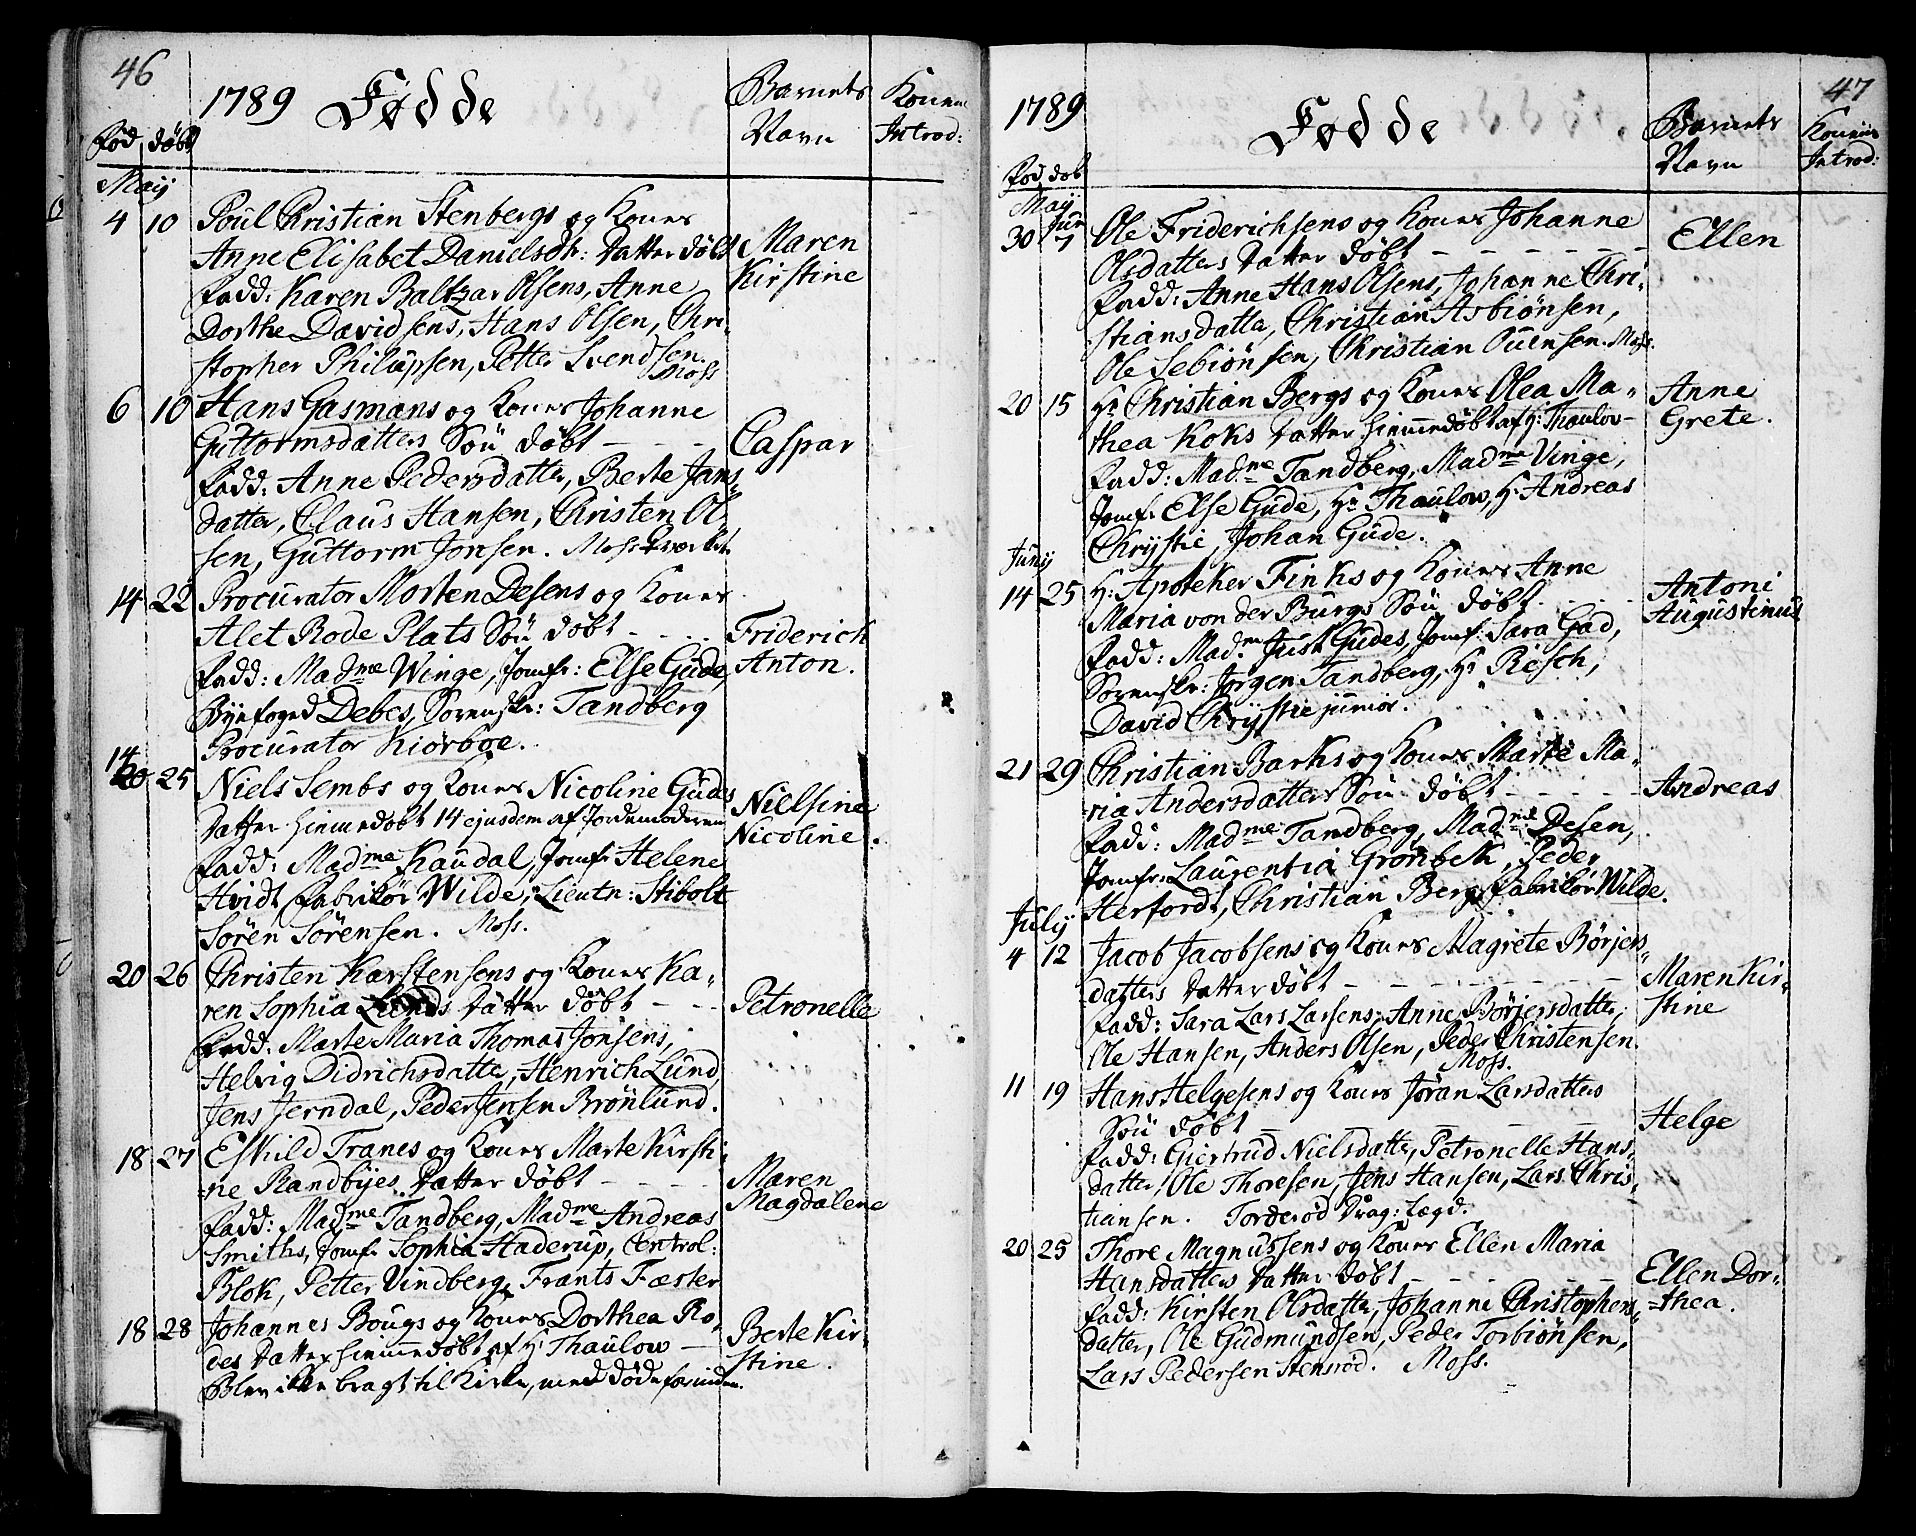 46
1789 Fødde
Barnets Navn
Konens Introd:
Fød døbt
May
4 10 Poul Christian Stenbergs og Kones
Anne Elisabet Danielsdtr: Datter døbt
Maren Kirstine
Fadd: Karen Baltzar Olsens, Anne
Dorthe Davidsens, Hans Olsen, Chri-
stopher Philupsen, Petter Svendsen.
Moss
6 10 Hans Gasmans og Kones Johanne
Guttormsdatters Søn døbt
Caspar
Fadd: Anne Pedersdatter, Berte Jans
datter, Claus Hansen, Christen Ol-
sen, Guttorm Jonsen. Mosseværket
14 22 Procurator Morten Desens og Kones
Alet Rode Plats Søn døbt
Friderich
Fadd: Madme Winge, Jomfr: Else Gude,
Anton.
Byefoged Debes, Sorenskr: Tandberg
Procurator Kiorboe.
14
20 25 Niels Sembs og Kones Nicoline Gudes
Nielsine
Datter hiemedøbt 14 ejusdem af Jordemoderen
Nicoline.
Fadd: Madme Kaudal, Jomfr Helene
Hvidt, Fabrikør Wilde, Lieutn: Stibolt
Søren Sørensen. Moss.
20 26 Christen Karstensens og Kones Ka-
ren Sophia Lunds Datter døbt
Petronelle
Fadd. Marte Maria Thomas Jonsens,
Helvig Didrichsdatter, Henrich Lund
Jens Jerndal, Peder Jensen Brønlund.
18 27 Eskild Tranes og Kones Marte Kirsti-
ne Randbyes Datter døbt
Maren
Magdalene
Fadd: Madme Tandberg, Madme Andreas
Smiths, Jomfr Sophia Haderup, Control:
Blok, Petter Vindberg, Frants Fæster
18 28 Johannes Bougs og Kones Dorthea Ro-
des Datter hiemmedøbt af Hr Thaulow
Berte Kir-
stine.
Blev ikke bragt til Kirke, med døde forinden.
47
1789
Fødde
Barnets
Navn
Konens
Introd:
Fød døb
May
Jun
30 7 Ole Friderichsens og Kones Johanne
Olsdatters Datter døbt
Ellen
Fadd: Anne Hans Olsens, Johanne Chri-
stiansdatter, Christian Asbiønsen,
Ole Sebiønsen, Christian Ouensen. Moss.
20 15 Hr Christian Bergs og Kones Olea Ma-
thea Koks Datter hiemmedøbt af Hr: Thaulov
Anne
Grete.
Fadd: Madme Tandberg, Madme Vinge,
Jomfr Else Gude, Hr Thaulow, Hr Andreas
Chrystie, Johan Gude.
Juny
14 25 Hr: Apoteker Finks og Kones Anne
Maria von der Burgs Søn døbt
Antoni
Augustinus
Fadd: Madm Just Gudes, Jomf: Sara Gad,
Sorenskr: Jørgen Tandberg, Hr Rosch,
David Chrystie junior.
21 29 Christian Barks og Kones Marte Ma-
ria Andersdatters Søn døbt
Andreas
Fadd: Madme Tandberg, Madme Desen,
Jomfr: Laurentia Grønbek, Peder
Herfordt, Christian Berg, Fabrikør Wilde.
July
4 12 Jacob Jacobsens og Kones Magrete Børjers
datters Datter døbt
Maren Kir-
stine
Fadd: Sara Lars Larsens, Anne Børjersdatter,
Ole Hansen, Anders Olsen, Peder Christensen.
Moss.
11 19 Hans Helgesens og Kones Jøran Larsdatters
Søn døbt
Helge
Fadd: Giertrud Nielsdatter, Petronelle Hans-
datter, Ole Thoresen, Jens Hansen, Lars Chris-
tiansen. Torderød Drag: Lægd.
20 25 Thore Magnussens og Kones Ellen Maria
Hansdatters Datter døbt
Ellen Dor-
=thea.
Fadd: Kirsten Olsdatter, Johanne Christophers
datter, Ole Gudmundsen, Peder Torbiønsen,
Lars Pedersen Stensrød. Moss.